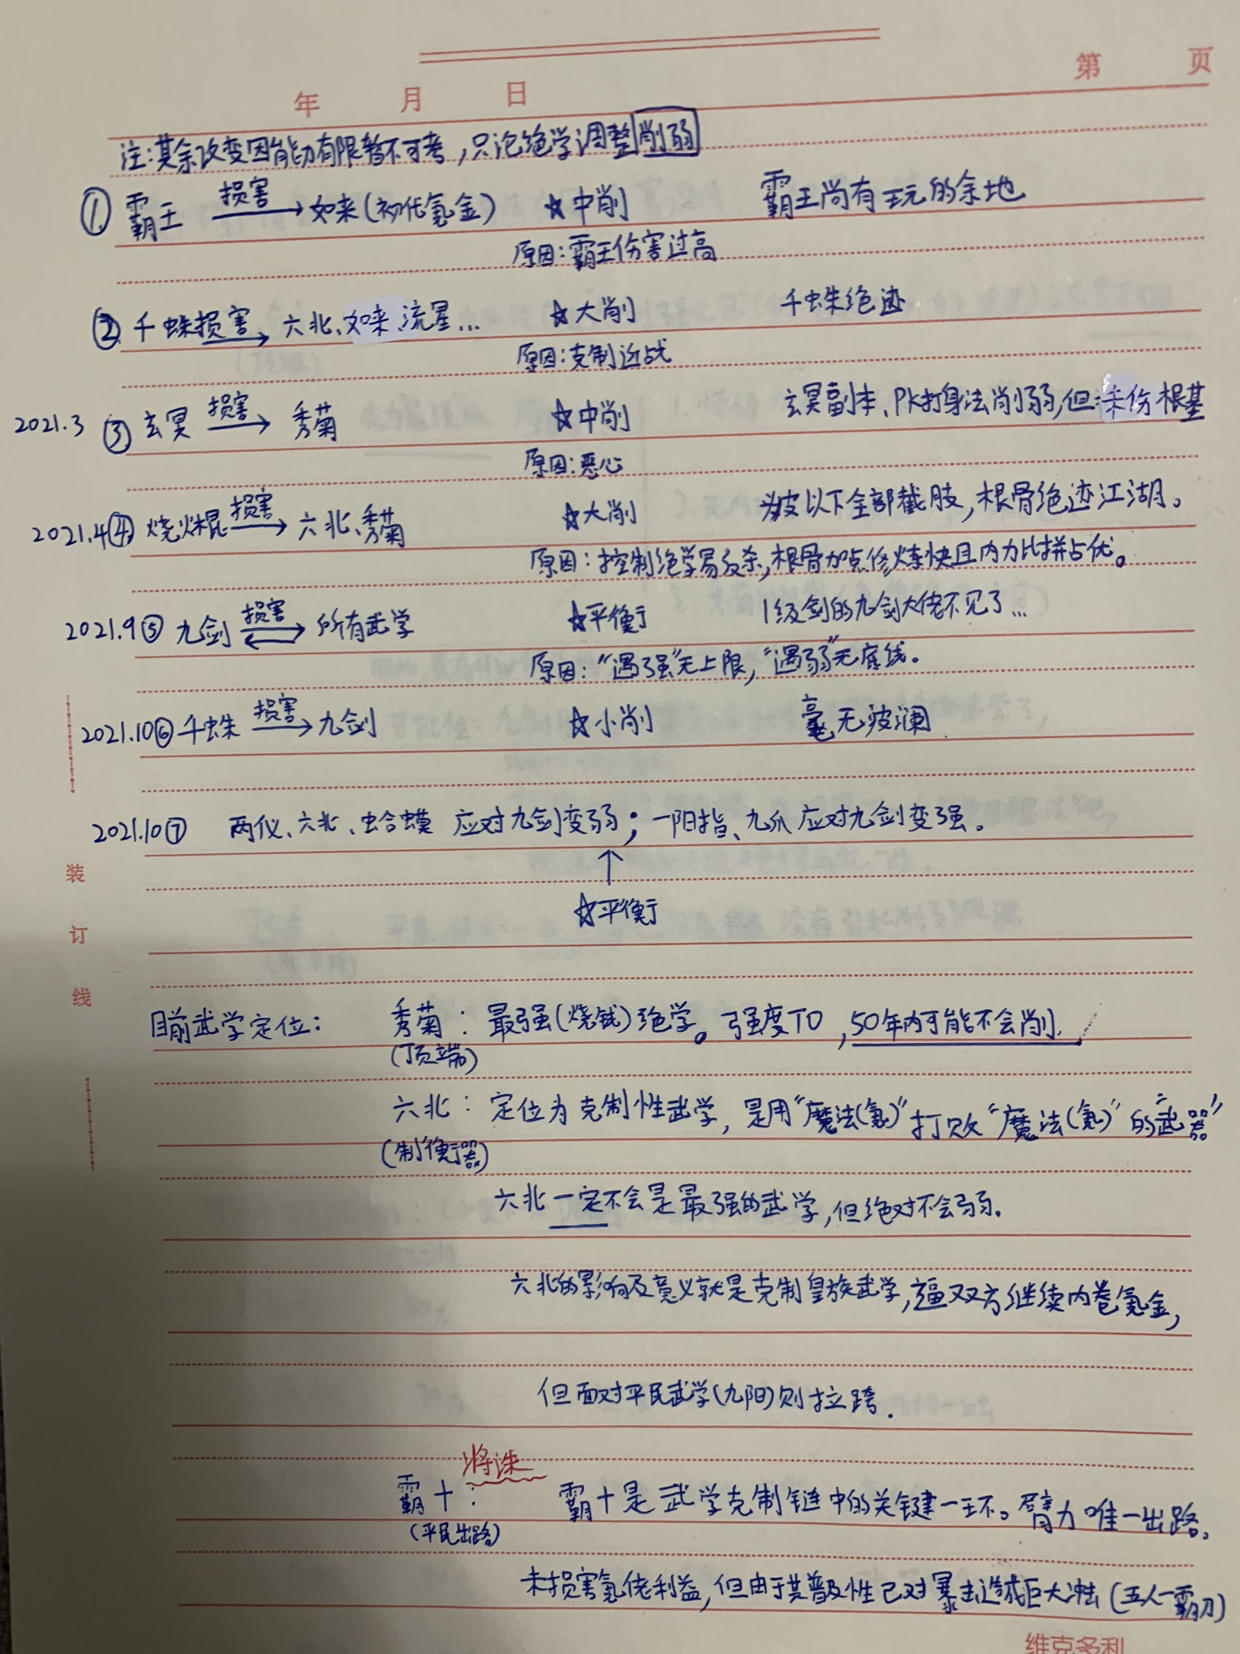 第 页
年 月 日
注:其余改变因能力有限暂不可考,只论绝学调整削弱
① 霸王 损害→ 如来(初代氪金) ☆中削 霸王尚有玩的余地
原因:霸王伤害过高
② 千蛛损害→ 六北、如来 流星... ☆大削 千蛛绝迹
原因:克制近战
2021.3 ③ 玄冥 损害→ 秀菊 ☆中削 玄冥副本、PK打身法削弱,但未伤根基
原因:恶心
2021.4④ 烧火棍 损害→ 六北、秀菊 ☆大削 以下全部截肢,根骨绝迹江湖。
原因:控制绝学易反杀,根骨加点修炼快且内力比拼占优。
2021.9⑤ 九剑 损害⇄ 所有武学 ☆平衡 1级剑的九剑大佬不见了...
原因:“遇强”无上限,“遇弱”无底线。
2021.10⑥ 千蛛 损害→ 九剑 ☆小削 毫无波澜
2021.10⑦ 两仪、六北、蛤蟆 应对九剑变弱;一阳指、九爪 应对九剑变强。
↑
☆平衡
装
订
线
目前武学定位: 秀菊:最强(烧钱)绝学。强度T0,50年内可能不会削.
(顶端)
六北:定位为克制性武学,是用“魔法(氪)”打败“魔法(氪)”的“武器”
(制衡器)
六北一定不会是最强的武学,但绝对不会弱.
六北的影响及意义就是克制皇族武学,逼双方继续内卷氪金,
但面对平民武学(九阳)则拉跨.
将诛
霸十: 霸十是武学克制链中的关键一环。臂力唯一出路.
(平民出路)
未损害氪佬利益,但由于其普及性已对暴击造成巨大冲击(五人一霸刀)
维克多利